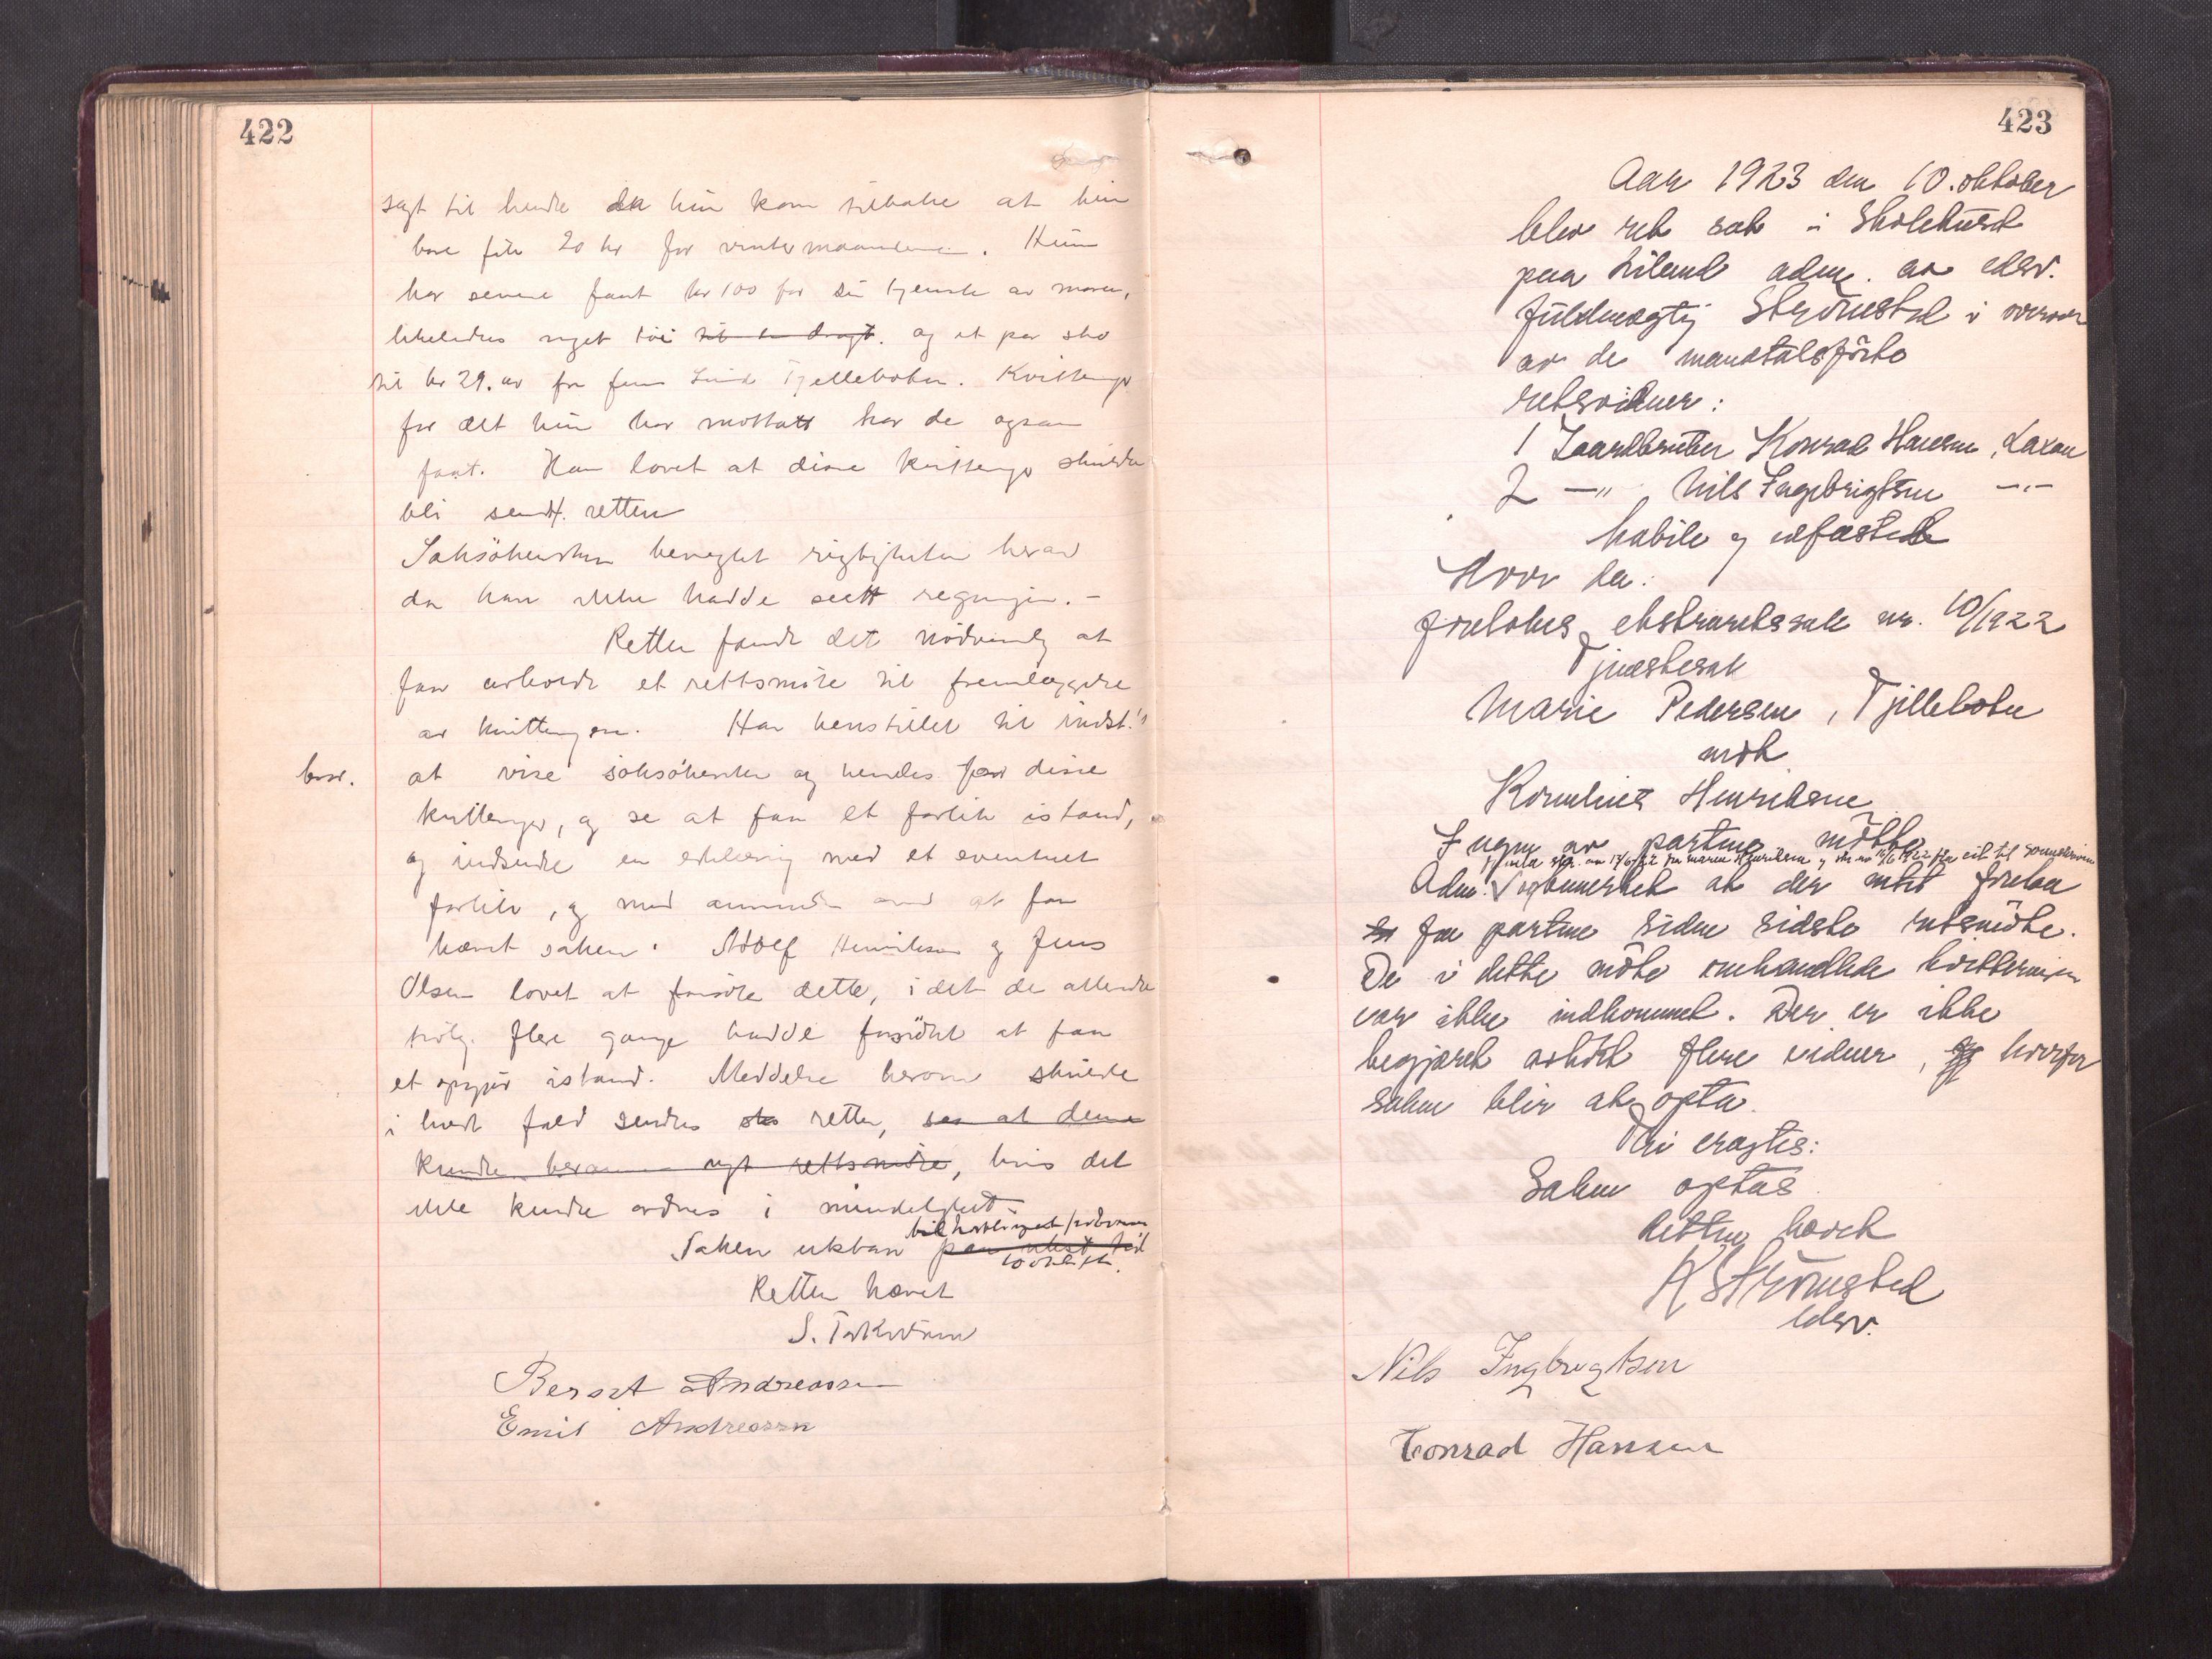 422
sagt til hende da hun kom tilbake at hun
bare fik 20 kr for vintermaanedene. Hun
har senere faat kr 100 for sin tjeneste av moren,
likeledes noget tøi til en dragt. og et par sko
til kr 29. av fru Tjelleboten. Kvittering
for alt hun har mottatt har de ogsaa
faat. Han lovet at disse kvitteringer skulde
bli sendt retten
Saksøkersken benegtet rigtigheten herav
da han ikke hadde seett regningen. -
Retten fandt det nødvendig at
faa avholdt et rettsmøte til fremlæggelse
av kvitteringene. Har henstillet til indst.
at vise saksøkersken og hendes far disse
kvitteringer, og se at faa et forlik istand,
og indsende en erklæring med et eventuelt
forlik, og med anmodn om at faa
hævet saken. Adolf Henriksen og Jens
Olsen lovet at forsøke dette, idet de allerede
flere gange hadde forsøkt at faa
et opgjør istand. Meddelelse herom skulde
i hvert fald sendes retten, saa at denne
kunde beramme nyt rettsmøte, hvis det
ikke kunde ordnes i mindelighet.
Saken utstaar paa ubest tid
Retten hævet
S. Torkildsen
Bernt Andreassen
Emil Andreassen
423
Aar 1923 den 10. oktober
blev ret sat i Skolehuset
paa Liland adm. av edsv.
fuldmægtig Strömsted i overvær
av de mandtalsförte
retsvidner:
1 Gaardbruker Konrad Hansen, Laxaa
2 —"— Nils Ingebrigtsen —"—
habile og edfæstede
Hvor da:
foretokes ekstraretssak nr. 10/1922
Tjenestesak
Marie Pedersen, Tjelleboten
mot
Kornelius Henriksen
Ingen av partene mötte
Adm. bemerket at der intet forelaa
fra partene siden sidste retsmöte.
De i dette möte omhandlede kvitteringer
var ikke indkommet. Der er ikke
begjæret avhört flere vidner, hvorfor
saken blir at opta.
Thi eragtes:
Saken optas
Retten hævet
K Strömsted
edsv.
Nils Ingbrigtsen
Conrad Hansen